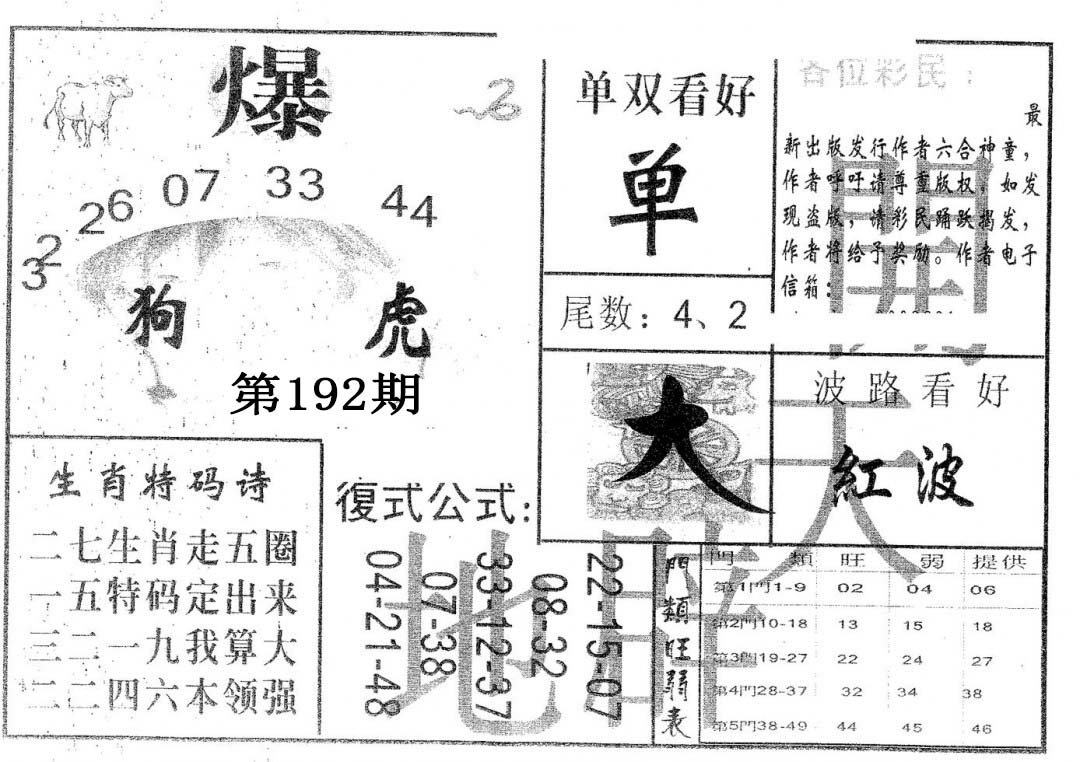 爆
32 26 07 33 44
狗 虎
第192期
单双看好
单
尾数：4、2
各位彩民：
最
新出版发行作者六合神童，
作者呼吁请尊重版权，如发
现盗版，请彩民踊跃揭发，
作者将给予奖励。作者电子
信箱：
大
波路看好
紅波
生肖特码诗
二七生肖走五圈
一五特码定出来
三二一九我算大
二二四六本领强
復式公式：
04-21-48
07-38
33-12-37
08-32
22-15-07
門類旺弱表
門 類 旺 弱 提供
第1門1-9 02 04 06
第2門10-18 13 15 18
第3門19-27 22 24 27
第4門28-37 32 34 38
第5門38-49 44 45 46